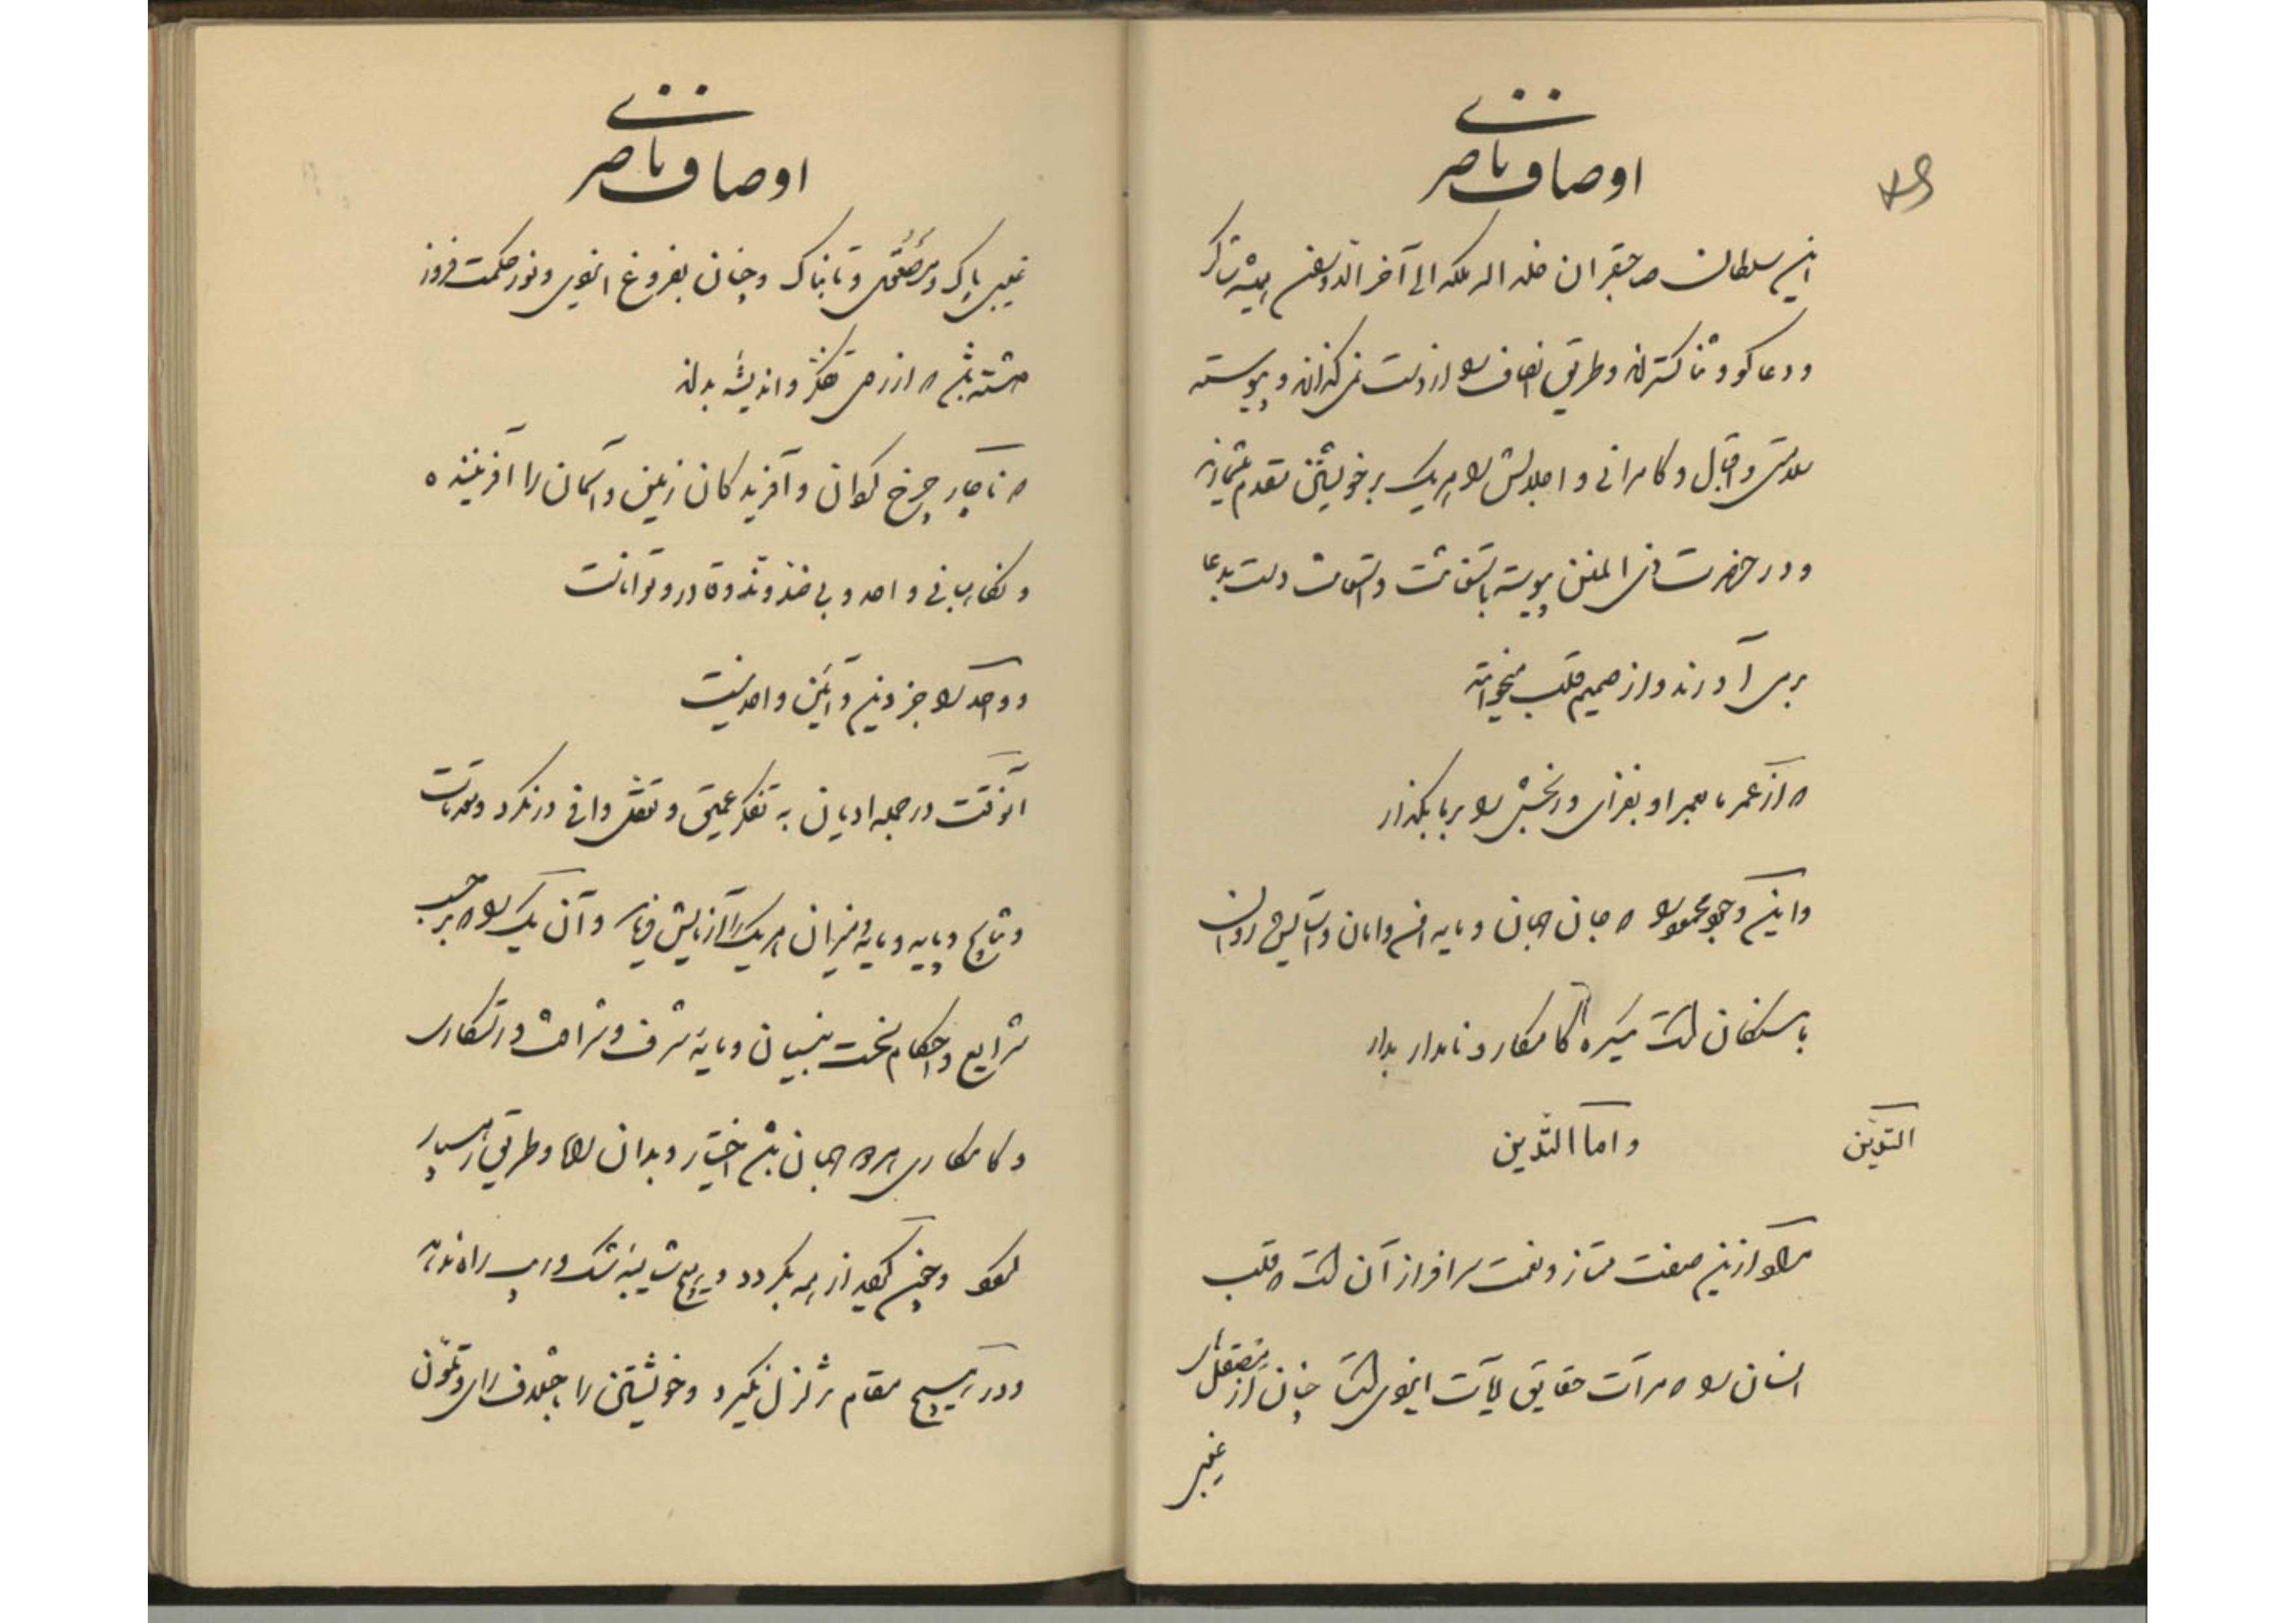 اوصاف ناصری
این سلطان صاحبقران خلد الله ملکه الی آخر الدوران همیشه شاکر
و دعاگو و ثناگسترند و طریق انصاف را از دست نمی گذرانند و پیوسته
سلامتی و اقبال و کامرانی و اجلالش را هر یک بر خویشتن مقدم میشمارند
و در حضرت ذی المنن پیوسته باستغاثت و دست بدعا
برمی آورند و از صمیم قلب میخوانند
که از عمر ما بعمر او بفزای و رنجش را بر ما بگذار
و این وجود محمود را که جان جهان و مایه امن و امان و آسایش روان
با سکان است همیشه کامکار و نامدار بدار
التدین
و اما التدین
مراد ازین صفت ممتاز و نعمت سرافراز آن است که قلب
انسان را که مرآت حقایق آیات ایزدی است چنان از
غیبی
اوصاف ناصری
غیبی پاک و مصفی و تابناک و چنان بفروغ ایزدی و نور حکمت فروز
هشته باشد که از روی تفکر و اندیشه بداند
که ناچار چرخ گردان و آفریدگان زمین و آسمان را آفریننده
و نگاربانی واحد و بی ضد و ند و قادر و تواناست
و واحد را جز دین و آئین واحد نیست
آنوقت در جمله ادیان به تفکر عمیق و تعقل وافی درنگرد و مقدمات
و نتایج و پایه و مایه و میزان هر یک را آزمایش فرماید و آن یک را که بر حسب
شرایع و احکام سخت بنیان و مایه شرف و شرافت و رستگاری
و کامکاری هر دو جهان باشد اختیار و بدان راه و طریق رهسپار
گردد و چنین عقیدت از همه بگردد و هیچ شایبه شک و ریب راه ندهد
و در هیچ مقام تزلزل نگیرد و خویشتن را باختلاف رای و تلون